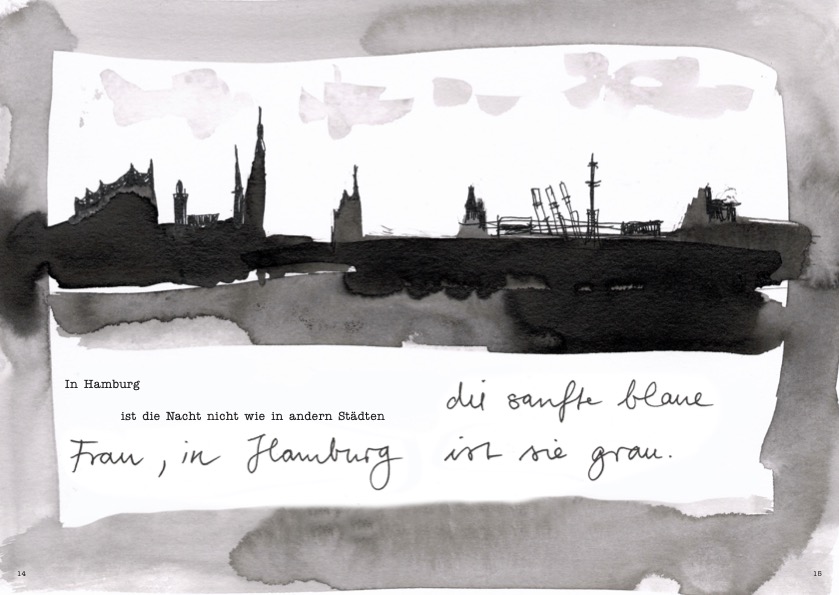 In Hamburg
ist die Nacht nicht wie in andern Städten
die sanfte blaue
Frau, in Hamburg ist sie grau.
14
15